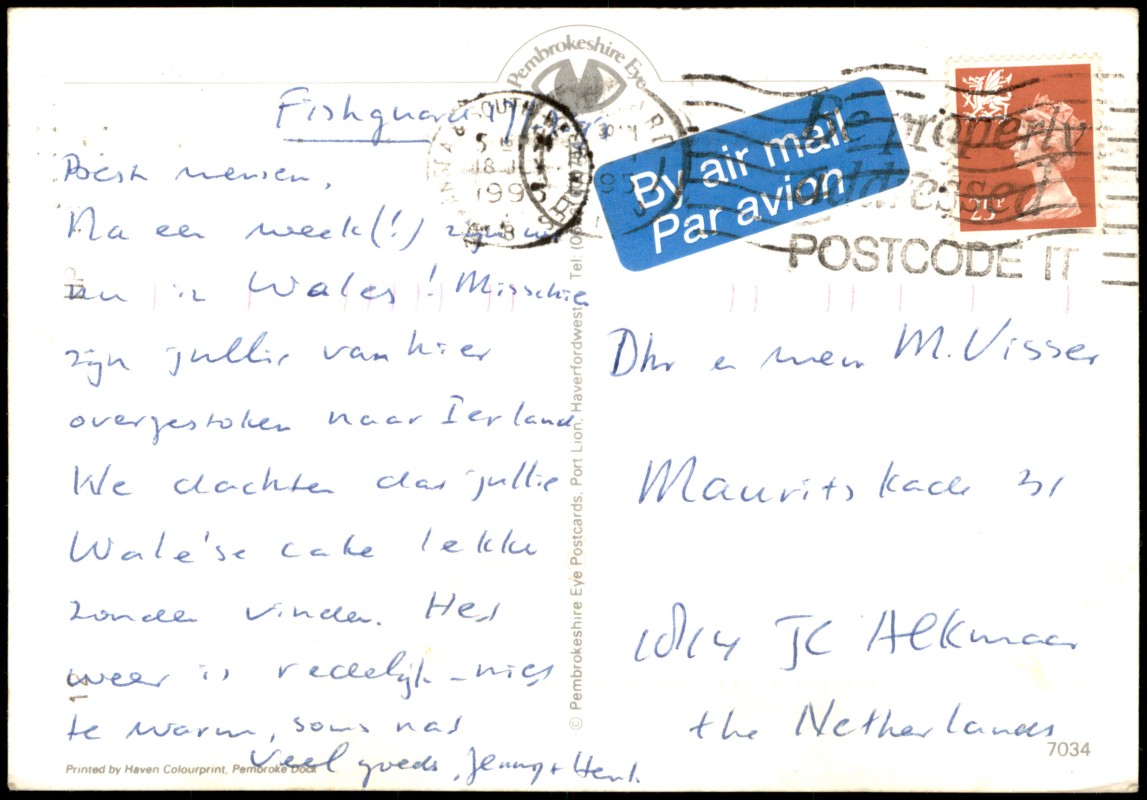 Pembrokeshire Eye
Fishguard
Best mensen,
Na een week(!) zijn we
nu in Wales! Misschien
zijn jullie van hier
overgestoken naar Ierland
We dachten dat jullie
Wale'se cake lekker
zouden vinden. Het
weer is redelijk - niet
te warm, soms nat
Veel goeds, Jenny + Henk.
Printed by Haven Colourprint, Pembroke Dock
© Pembrokeshire Eye Postcards, Port Lion, Haverfordwest, Tel: (06
By air mail
Par avion
Be properly
addressed
POSTCODE IT
Dhr en mevr M. Visser
Mauritskade 31
1814 JC Alkmaar
the Netherlands
7034